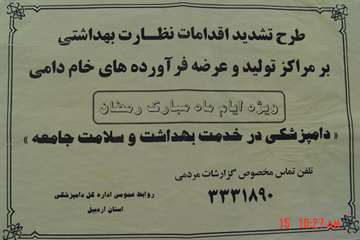 طرح تشدید اقدامات نظارت بهداشتی
بر مراکز تولید و عرضه فرآورده های خام دامی
ویژه ایام ماه مبارک رمضان
« دامپزشکی در خدمت بهداشت و سلامت جامعه »
تلفن تماس مخصوص گزارشات مردمی
۳۳۳۱۸۹۰
روابط عمومی اداره کل دامپزشکی
استان اردبیل
15 10:27 AM